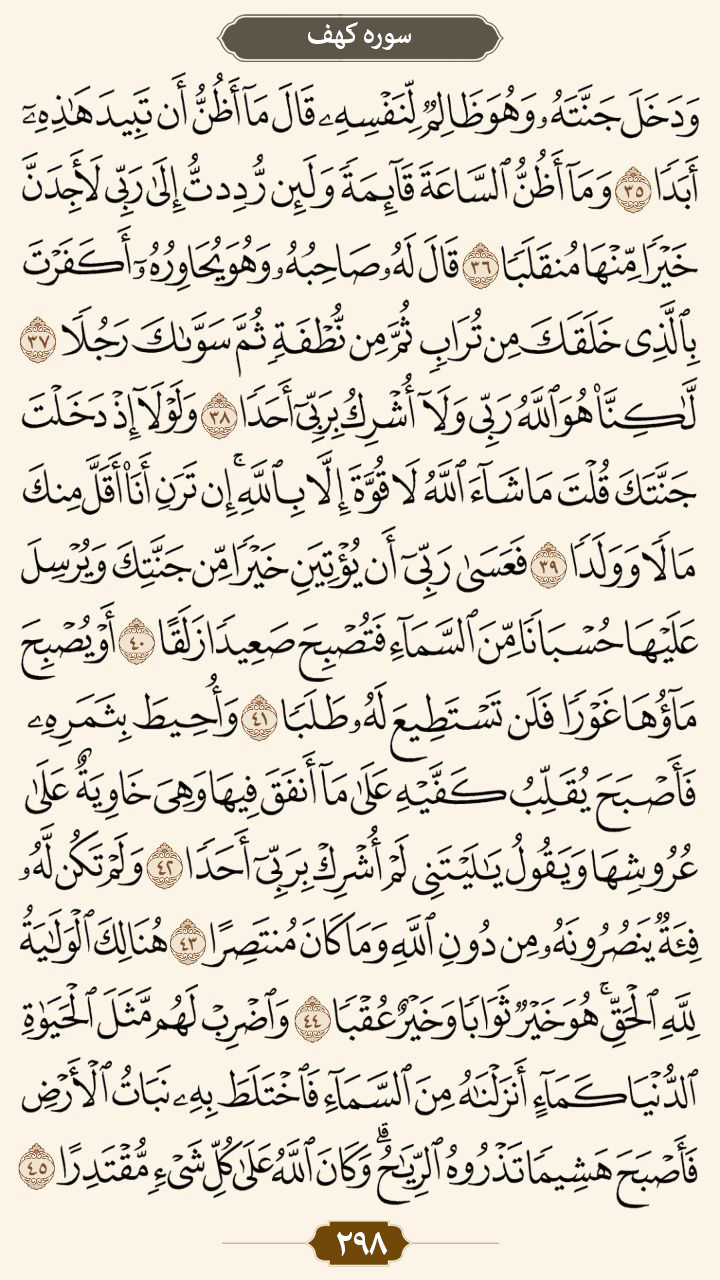 سوره کهف
وَدَخَلَ جَنَّتَهُۥ وَهُوَ ظَالِمٌ لِّنَفْسِهِۦ قَالَ مَآ أَظُنُّ أَن تَبِيدَ هَٰذِهِۦٓ
أَبَدًا ٣٥ وَمَآ أَظُنُّ ٱلسَّاعَةَ قَآئِمَةً وَلَئِن رُّدِدتُّ إِلَىٰ رَبِّى لَأَجِدَنَّ
خَيْرًا مِّنْهَا مُنقَلَبًا ٣٦ قَالَ لَهُۥ صَاحِبُهُۥ وَهُوَ يُحَاوِرُهُۥٓ أَكَفَرْتَ
بِٱلَّذِى خَلَقَكَ مِن تُرَابٍ ثُمَّ مِن نُّطْفَةٍ ثُمَّ سَوَّىٰكَ رَجُلًا ٣٧
لَّٰكِنَّا۠ هُوَ ٱللَّهُ رَبِّى وَلَآ أُشْرِكُ بِرَبِّىٓ أَحَدًا ٣٨ وَلَوْلَآ إِذْ دَخَلْتَ
جَنَّتَكَ قُلْتَ مَا شَآءَ ٱللَّهُ لَا قُوَّةَ إِلَّا بِٱللَّهِ ۚ إِن تَرَنِ أَنَا۠ أَقَلَّ مِنكَ
مَالًا وَوَلَدًا ٣٩ فَعَسَىٰ رَبِّىٓ أَن يُؤْتِيَنِ خَيْرًا مِّن جَنَّتِكَ وَيُرْسِلَ
عَلَيْهَا حُسْبَانًا مِّنَ ٱلسَّمَآءِ فَتُصْبِحَ صَعِيدًا زَلَقًا ٤٠ أَوْ يُصْبِحَ
مَآؤُهَا غَوْرًا فَلَن تَسْتَطِيعَ لَهُۥ طَلَبًا ٤١ وَأُحِيطَ بِثَمَرِهِۦ
فَأَصْبَحَ يُقَلِّبُ كَفَّيْهِ عَلَىٰ مَآ أَنفَقَ فِيهَا وَهِىَ خَاوِيَةٌ عَلَىٰ
عُرُوشِهَا وَيَقُولُ يَٰلَيْتَنِى لَمْ أُشْرِكْ بِرَبِّىٓ أَحَدًا ٤٢ وَلَمْ تَكُن لَّهُۥ
فِئَةٌ يَنصُرُونَهُۥ مِن دُونِ ٱللَّهِ وَمَا كَانَ مُنتَصِرًا ٤٣ هُنَالِكَ ٱلْوَلَٰيَةُ
لِلَّهِ ٱلْحَقِّ ۚ هُوَ خَيْرٌ ثَوَابًا وَخَيْرٌ عُقْبًا ٤٤ وَٱضْرِبْ لَهُم مَّثَلَ ٱلْحَيَوٰةِ
ٱلدُّنْيَا كَمَآءٍ أَنزَلْنَٰهُ مِنَ ٱلسَّمَآءِ فَٱخْتَلَطَ بِهِۦ نَبَاتُ ٱلْأَرْضِ
فَأَصْبَحَ هَشِيمًا تَذْرُوهُ ٱلرِّيَٰحُ ۗ وَكَانَ ٱللَّهُ عَلَىٰ كُلِّ شَىْءٍ مُّقْتَدِرًا ٤٥
٢٩٨